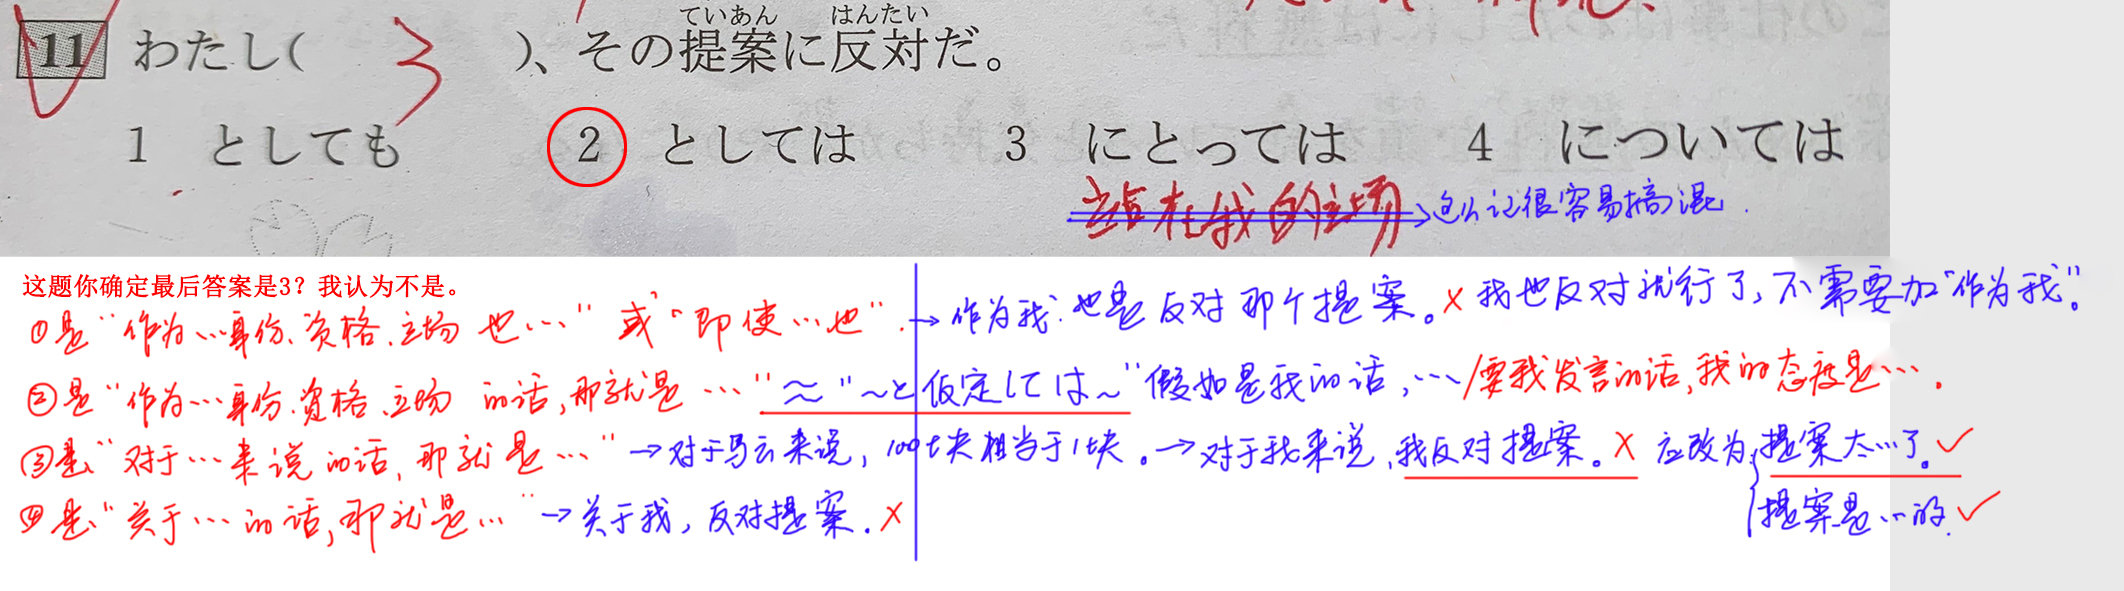 11 わたし( 3 )、その提案に反対だ。
ていあん はんたい
1 としても 2 としては 3 にとっては 4 については
站在我的立场→这么记很容易搞混.
这题你确定最后答案是3？我认为不是。
①是“作为…身份、资格、立场 也…”或“即使…也”.→作为我:也是反对那个提案。×我也反对就行了,不需要加“作为我”。
②是“作为…身份、资格、立场 的话,那就是…”≈“~と仮定しては~”假如是我的话,…/要我发言的话,我的态度是….
③是“对于…来说的话,那就是…”→对于马云来说,100t块相当于1t块。→对于我来说,我反对提案。× 应改为 提案太…了。✓
④是“关于…的话,那就是…”→关于我,反对提案.× 提案是…的.✓